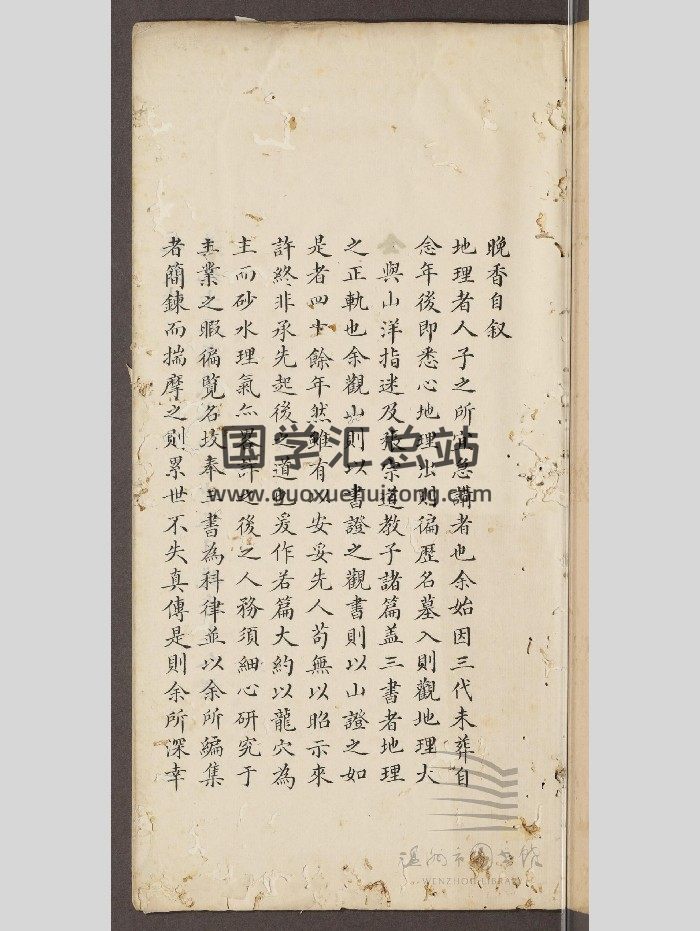 晚香自叙
地理者人子之所宜急講者也余始因三代未葬自
念年後即悉心地理出則徧歷名墓入則觀地理大
全與山洋指迷及宗道教子諸篇盖三書者地理
之正軌也余觀山則以書證之觀書則以山證之如
是者四十餘年然雖有以安妥先人苟無以昭示來
許終非承先起後之道也爰作若篇大約以龍穴為
主而砂水理氣亦畧詳之後之人務須細心研究于
主業之暇徧覽名坟奉三書為科律並以余所編集
者簡鍊而揣摩之則累世不失真傳是則余所深幸
国学汇总站
www.guoxuehuizong.com
溫州市圖書館
WENZHOU LIBRARY